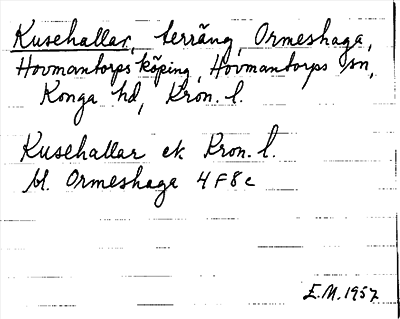 Kusehallar, terräng, Ormeshaga,
Hovmantorps köping, Hovmantorps sn,
Konga hd, Kron. l.
Kusehallar ek Kron. l.
bl. Ormeshaga 4F8c
E.M. 1957